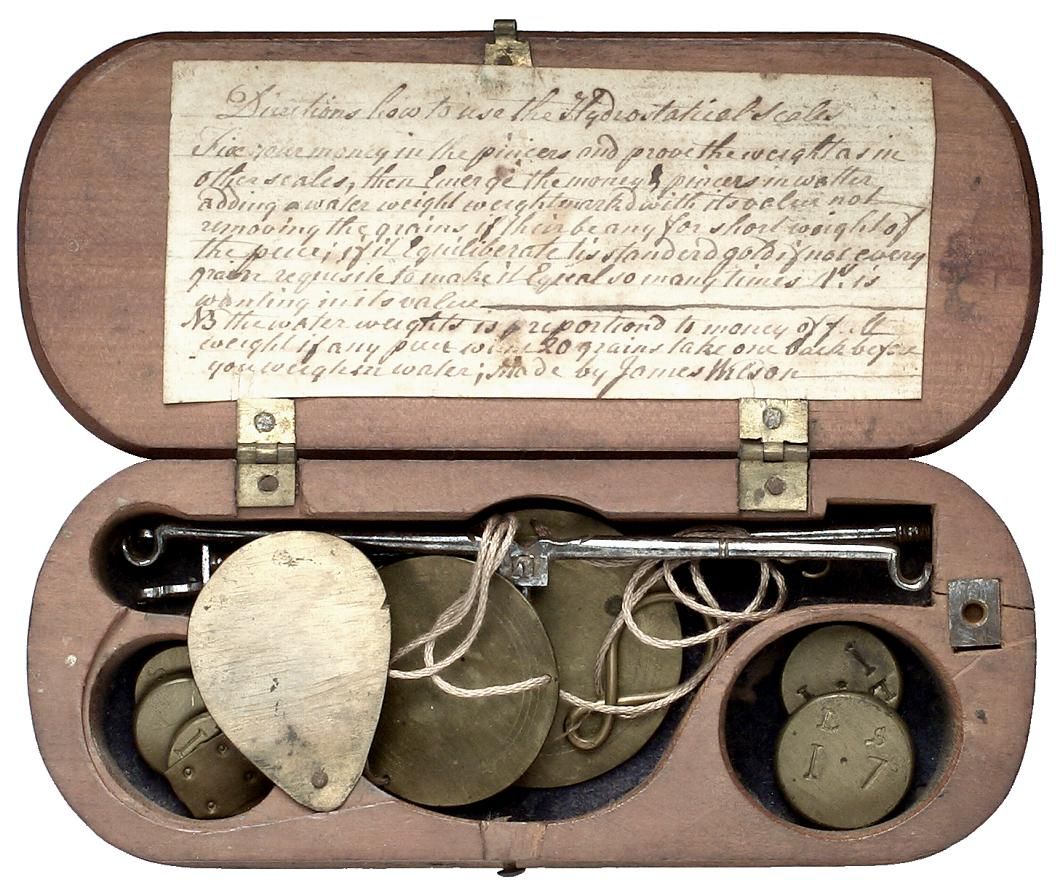 Directions how to use the Hydrostatical scales
Fix your money in the pincers and prove the weight as in
other scales, then Emerge the money & pincers in watter
adding a water weight weight markd with its value not
removing the grains if their be any for short weight of
the peice; if it Equiliberate tis standerd gold if not every
grain requisite to make it Equal so many times is
wanting in its value
NB the water weights is preportiond to money of full
weight if any peice wants 20 grains take one back before
you weigh in water; made by James Wilson
1
1
L S
1 7